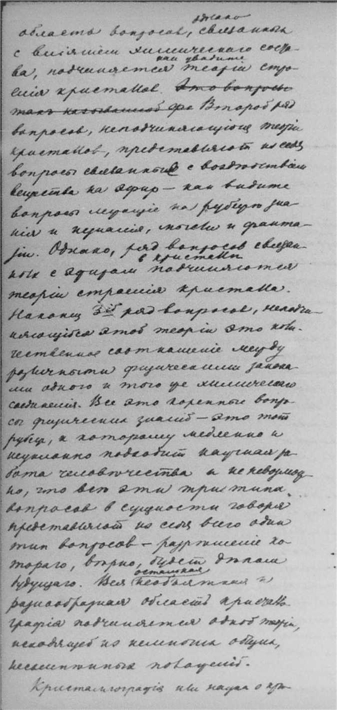 однако
область вопросовъ, связанныхъ
с вліяніем химическаго соста-
ва, подчиняется теоріи стро-
как увидите
енія кристалловъ. Это вопросы
такъ называемой фи Второй ряд
вопросовъ, неподчиняющихся теоріи
кристалловъ, представляютъ из себя
вопросы связанные с воздѣйствіем
вещества на эфир — как видите
вопросы лежащіе на рубежѣ зна-
нія и незнанія, мысли и фанта-
зіи. Однако, ряд вопросовъ связан-
ныхъ с эфиромъ в кристаллѣ подчиняются
теоріи строенія кристалла.
Наконец 3ій ряд вопросовъ, неподчи-
няющійся этой теоріи это коли-
чественное соотношеніе между
различными физическими закона-
ми одного и того же химическаго
соединенія. Все это коренные вопро-
сы физическихъ знаній — это тот
рубеж, к которому медленно и
неуклонно подходит научная ра-
бота человѣчества и не невозмож-
но, что всѣ эти три типа
вопросовъ в сущности говоря
представляютъ из себя всего один
тип вопросовъ — разрѣшеніе ко-
тораго, вѣрно, будетъ дѣлом
будущаго. Вся остальная необъятная и
разнообразная область кристалло-
графіи подчиняется одной теоріи,
исходящей из немногихъ общихъ,
несложныхъ положеній.
Кристаллографія или наука о кри-